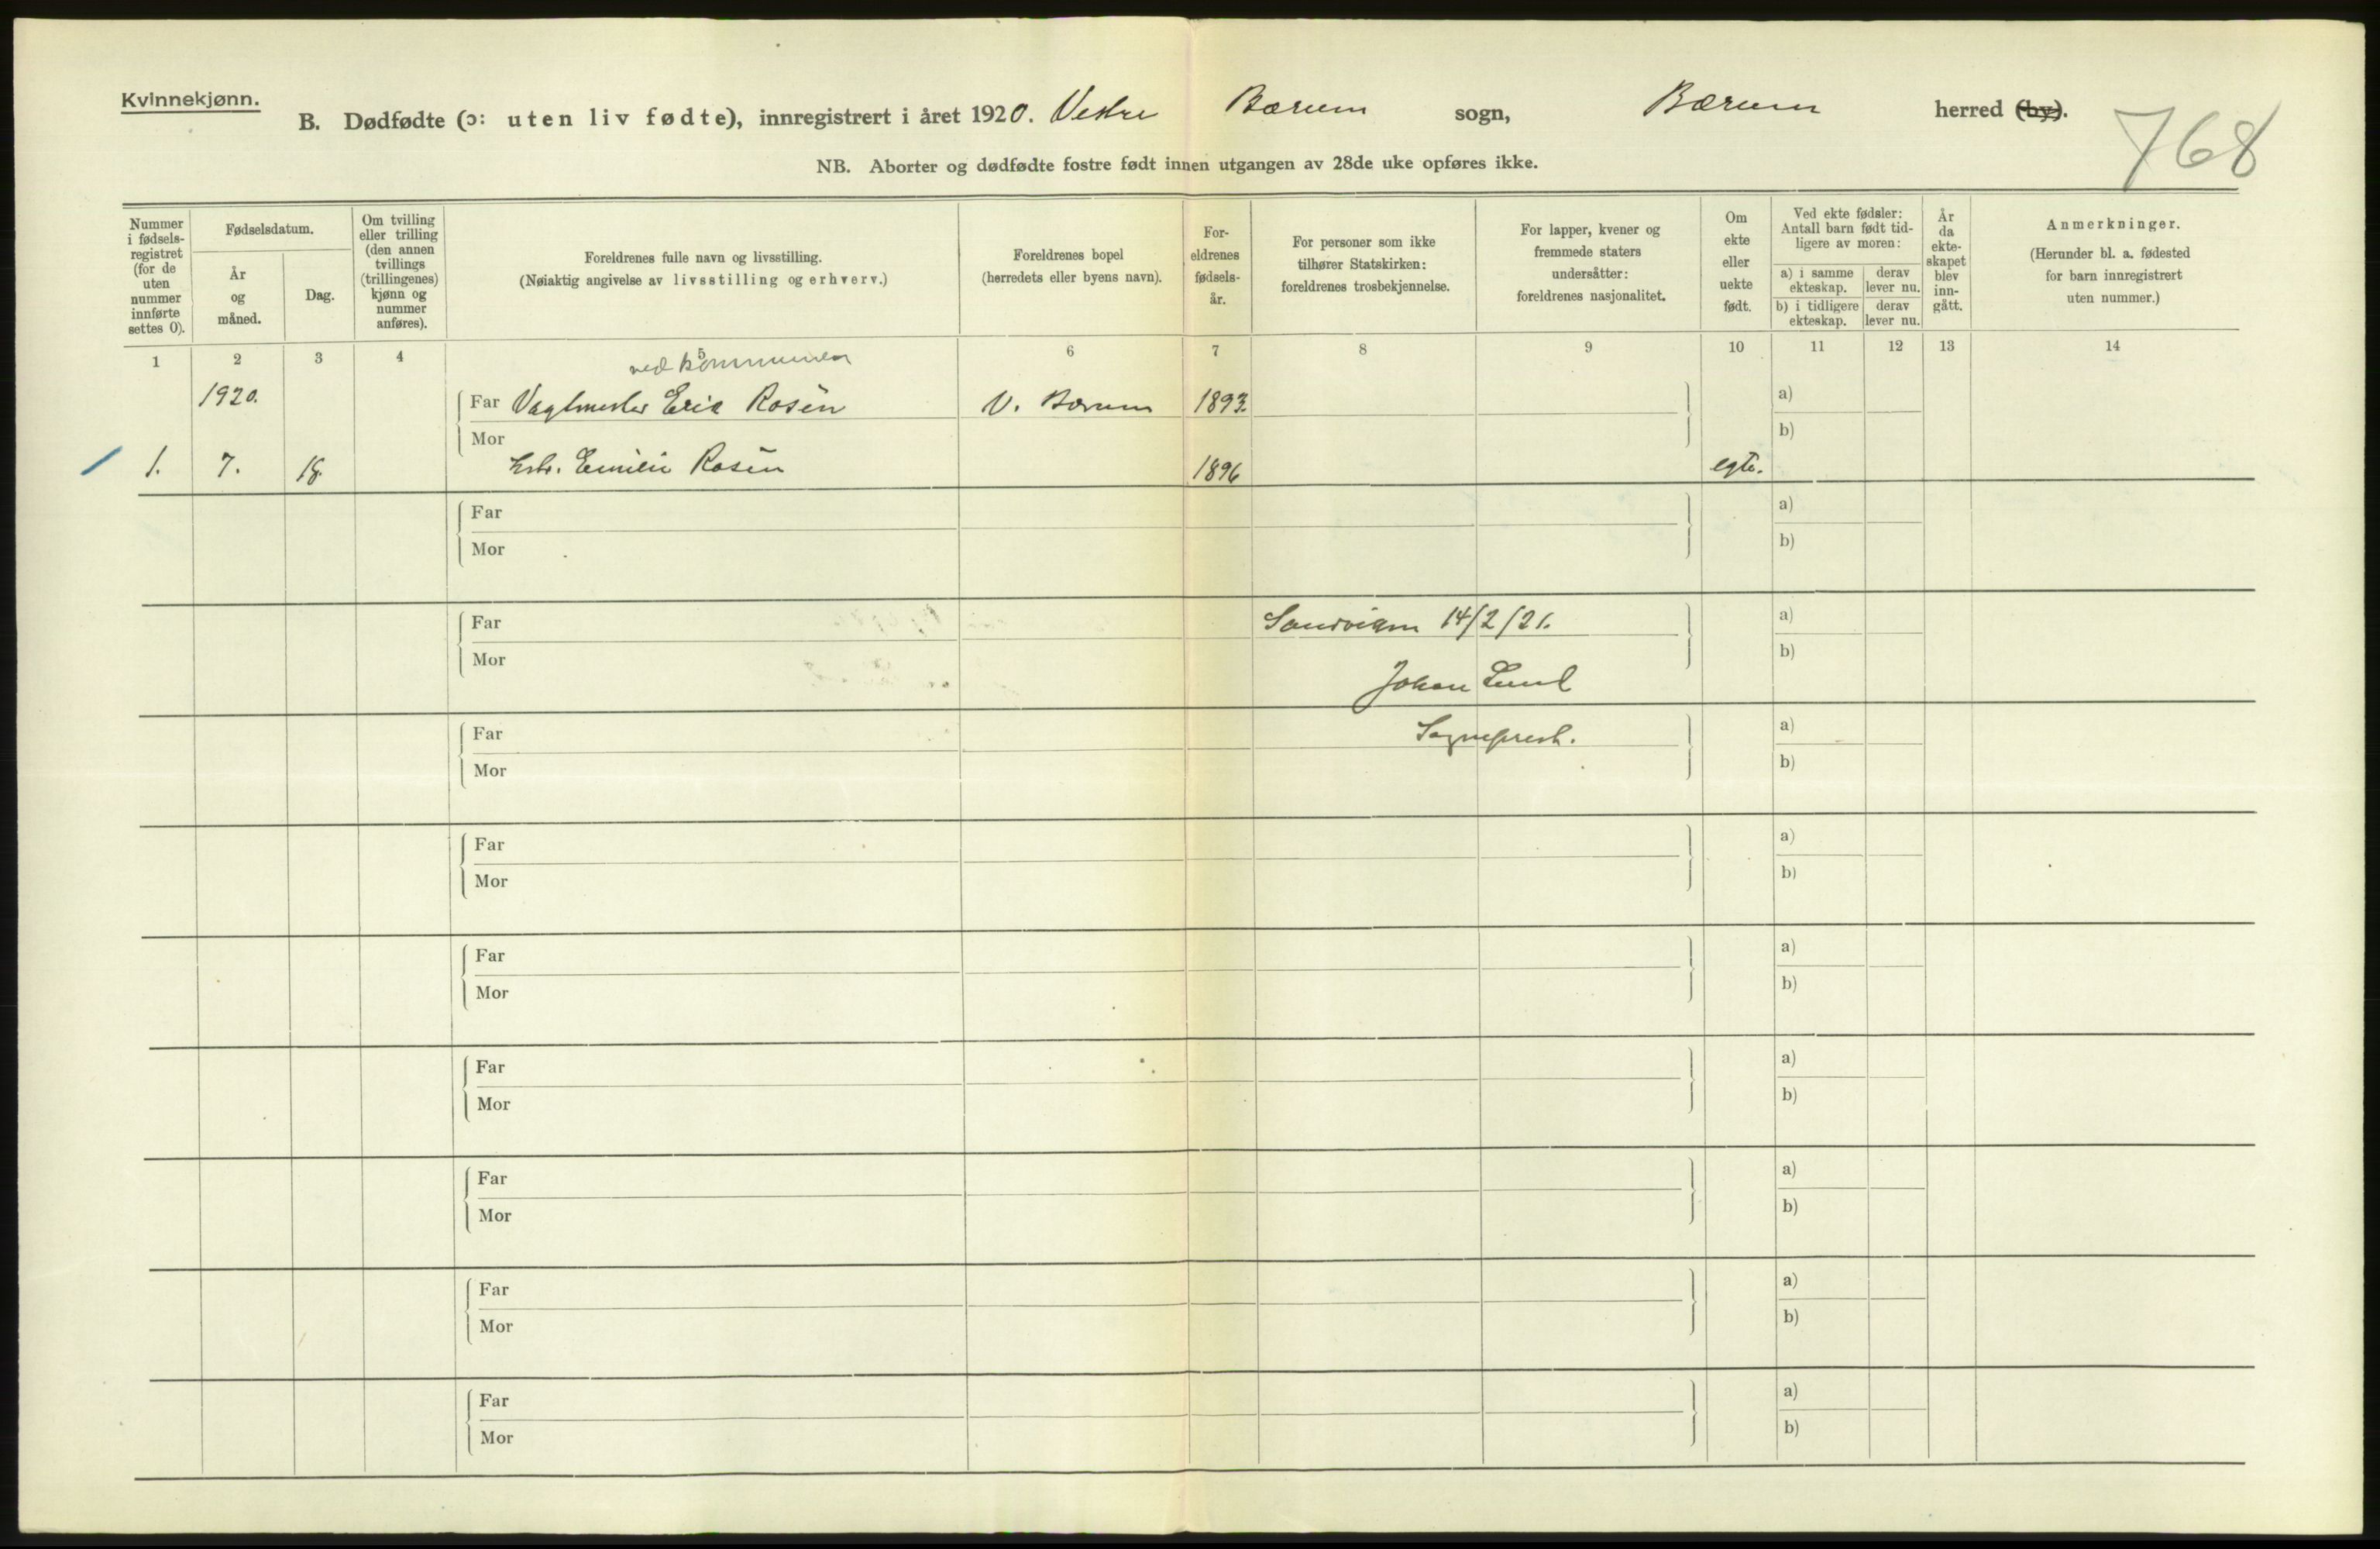 Kvinnekjønn.
B. Dødfødte (ɔ: uten liv fødte), innregistrert i året 1920. Vestre Bærum sogn, Bærum herred (by).
768
NB. Aborter og dødfødte fostre født innen utgangen av 28de uke opføres ikke.
Nummer i fødsels-registret (for de uten nummer innførte settes 0).
Fødselsdatum.
År og måned.
Dag.
Om tvilling eller trilling (den annen tvillings (trillingenes) kjønn og nummer anføres).
Foreldrenes fulle navn og livsstilling.
(Nøiaktig angivelse av livsstilling og erhverv.)
Foreldrenes bopel
(herredets eller byens navn).
For-eldrenes fødsels-år.
For personer som ikke tilhører Statskirken: foreldrenes trosbekjennelse.
For lapper, kvener og fremmede staters undersåtter: foreldrenes nasjonalitet.
Om ekte eller uekte født.
Ved ekte fødsler: Antall barn født tid-ligere av moren:
a) i samme ekteskap.
derav lever nu.
b) i tidligere ekteskap.
derav lever nu.
År da ekte-skapet blev inn-gått.
Anmerkninger.
(Herunder bl. a. fødested for barn innregistrert uten nummer.)
1 2 3 4 5 6 7 8 9 10 11 12 13 14
ved kommunen
1920. Far Vagtmester Eric Rosén V. Bærum 1893. a)
Mor b)
1. 7. 18. Emilie Rosén 1896 egte.
Far a)
Mor b)
Far Sandviken 14/2/21. a)
Mor b)
Johan Lund
Far Sogneprest. a)
Mor b)
Far a)
Mor b)
Far a)
Mor b)
Far a)
Mor b)
Far a)
Mor b)
Far a)
Mor b)
Far a)
Mor b)